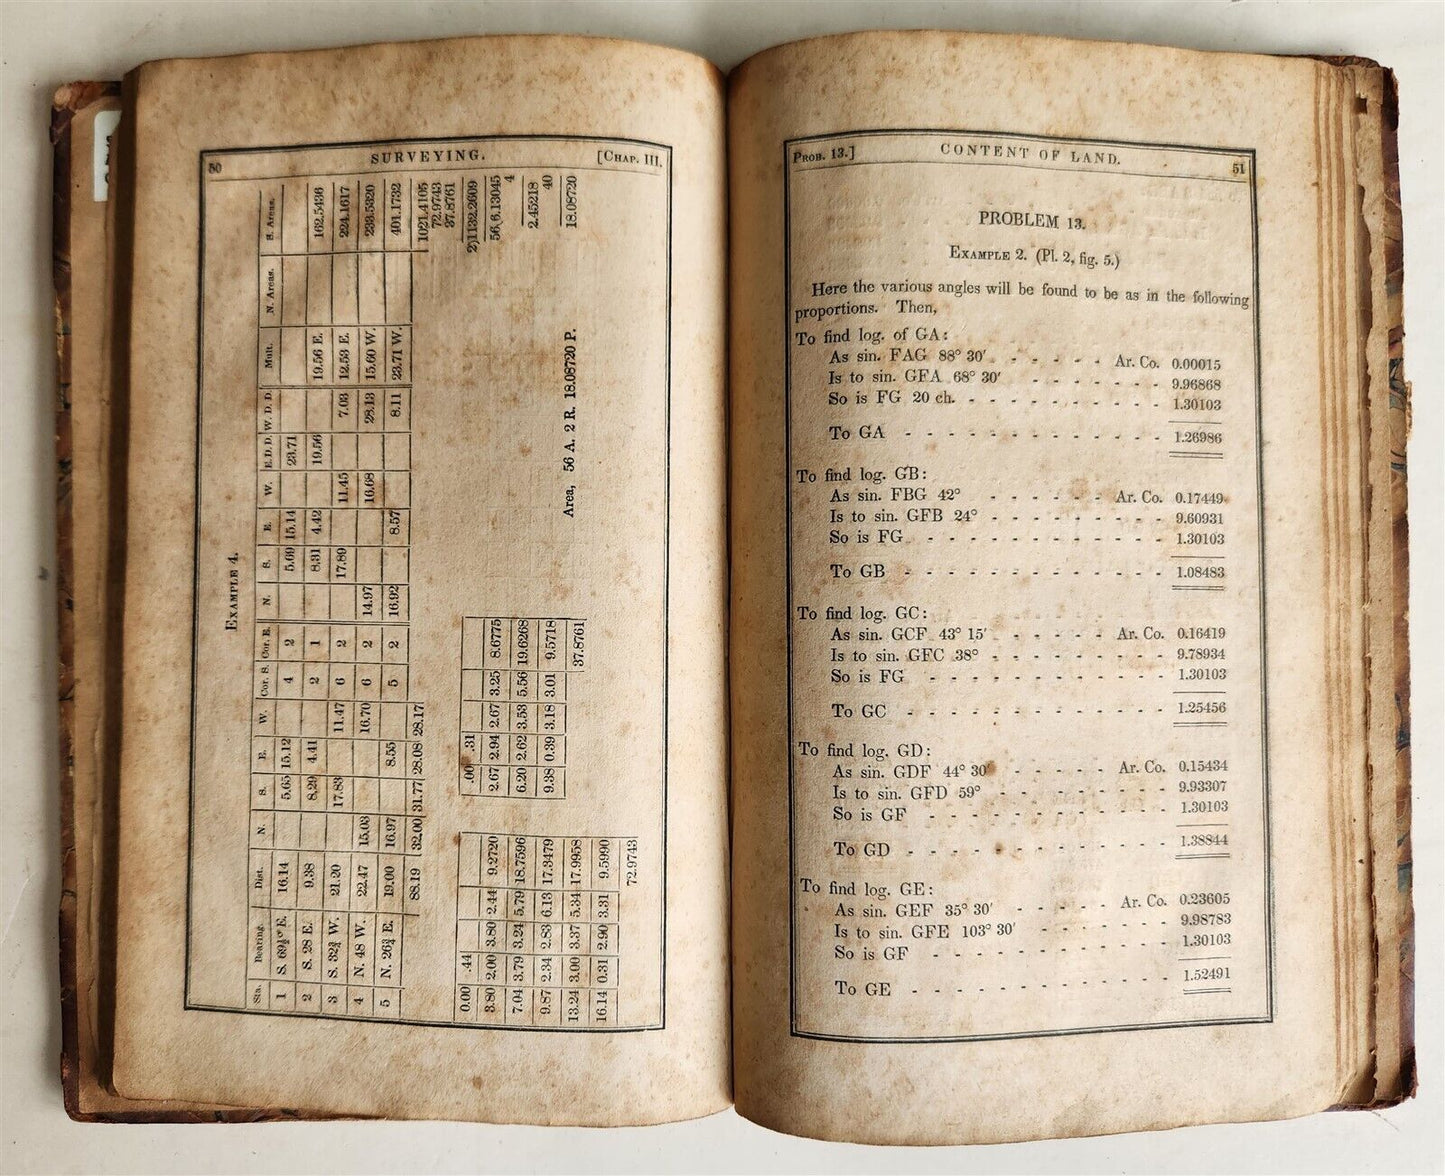 50 SURVEYING. [CHAP. III.
EXAMPLE 4.
Sta. Bearing. Dist. N. S. E. W. Cor. S. Cor. E. N. S. E. W. E. D. D. W. D. D. Mult. N. Areas. S. Areas.
1 S. 69½° E. 16.14 5.65 15.12 4 2 5.69 15.14 23.71
2 S. 28 E. 9.38 8.29 4.41 2 1 8.31 4.42 19.56 19.56 E. 162.5436
3 S. 32¾ W. 21.20 17.83 11.47 6 2 17.89 11.45 7.03 12.53 E. 224.1617
4 N. 48 W. 22.47 15.03 16.70 6 2 14.97 16.68 28.13 15.60 W. 233.5320
5 N. 26¾ E. 19.00 16.97 8.55 5 2 16.92 8.57 8.11 23.71 W. 401.1732
88.19 32.00 31.77 28.08 28.17 1021.4105
72.9743
37.8761
2)1132.2609
56,6.13045
4
2.45218
40
18.08720
0.00 .44
3.80 2.00 3.80 2.44 9.2720
7.04 3.79 3.24 5.79 18.7596
9.87 2.34 2.83 6.13 17.3479
13.24 3.00 3.37 5.34 17.9958
16.14 0.31 2.90 3.31 9.5990
72.9743
.00 .31
2.67 2.94 2.67 3.25 8.6775
6.20 2.62 3.53 5.56 19.6268
9.38 0.39 3.18 3.01 9.5718
37.8761
Area, 56 A. 2 R. 18.08720 P.
PROB. 13.] CONTENT OF LAND. 51
PROBLEM 13.
EXAMPLE 2. (Pl. 2, fig. 5.)
Here the various angles will be found to be as in the following
proportions. Then,
To find log. of GA:
As sin. FAG 88° 30′ - - - - - Ar. Co. 0.00015
Is to sin. GFA 68° 30′ - - - - - - - 9.96868
So is FG 20 ch. - - - - - - - - - - 1.30103
To GA - - - - - - - - - - - - 1.26986
To find log. GB:
As sin. FBG 42° - - - - - - Ar. Co. 0.17449
Is to sin. GFB 24° - - - - - - - - - 9.60931
So is FG - - - - - - - - - - - - 1.30103
To GB - - - - - - - - - - - - 1.08483
To find log. GC:
As sin. GCF 43° 15′ - - - - - Ar. Co. 0.16419
Is to sin. GFC 38° - - - - - - - - - 9.78934
So is FG - - - - - - - - - - - 1.30103
To GC - - - - - - - - - - - - 1.25456
To find log. GD:
As sin. GDF 44° 30′ - - - - - Ar. Co. 0.15434
Is to sin. GFD 59° - - - - - - - - 9.93307
So is GF - - - - - - - - - - - 1.30103
To GD - - - - - - - - - - - - 1.38844
To find log. GE:
As sin. GEF 35° 30′ - - - - - Ar. Co. 0.23605
Is to sin. GFE 103° 30′ - - - - - - 9.98783
So is GF - - - - - - - - - - - 1.30103
To GE - - - - - - - - - - - - 1.52491